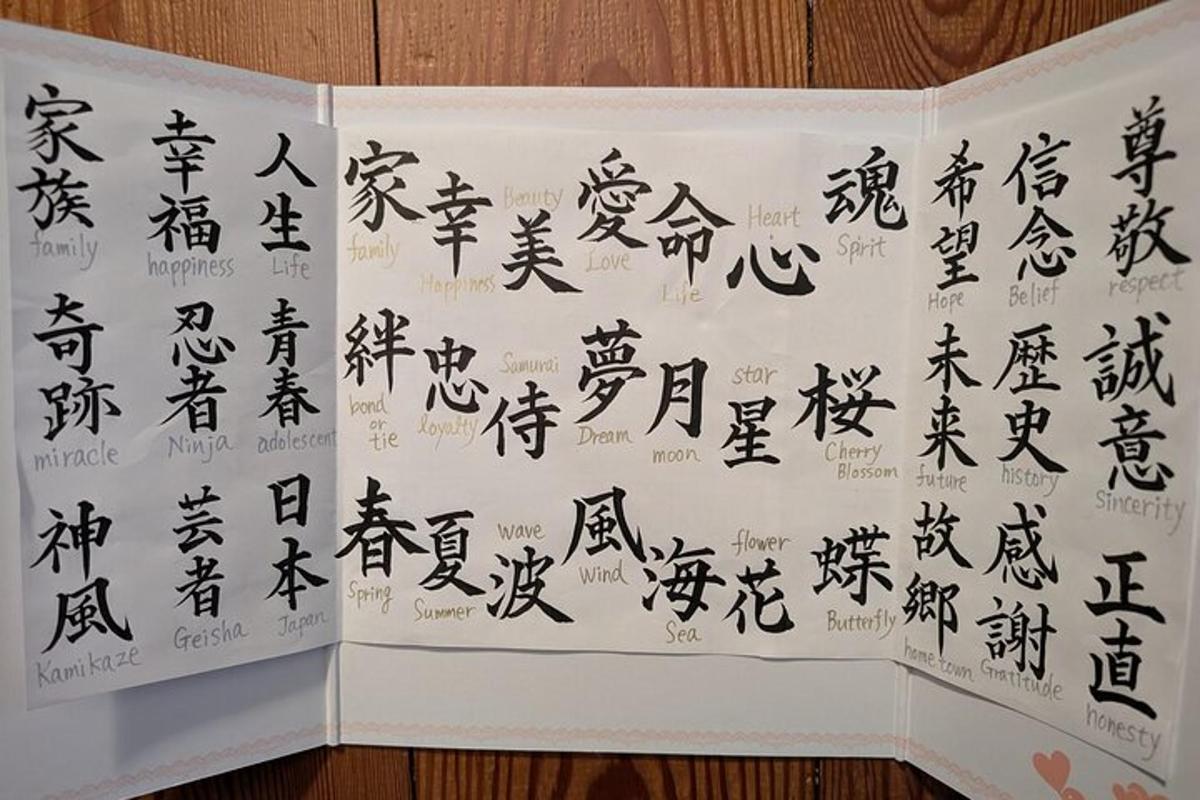 家族
family
幸福
happiness
人生
Life
奇跡
miracle
忍者
Ninja
青春
adolescent
神風
Kamikaze
芸者
Geisha
日本
Japan
家
family
幸
Happiness
Beauty
美
愛
Love
命
Life
Heart
心
魂
Spirit
絆
bond
or
tie
忠
loyalty
Samurai
侍
夢
Dream
月
moon
star
星
桜
Cherry
Blossom
春
Spring
夏
Summer
wave
波
風
Wind
海
Sea
flower
花
蝶
Butterfly
希望
Hope
信念
Belief
尊敬
respect
未来
future
歴史
history
誠意
Sincerity
故郷
home town
感謝
Gratitude
正直
honesty